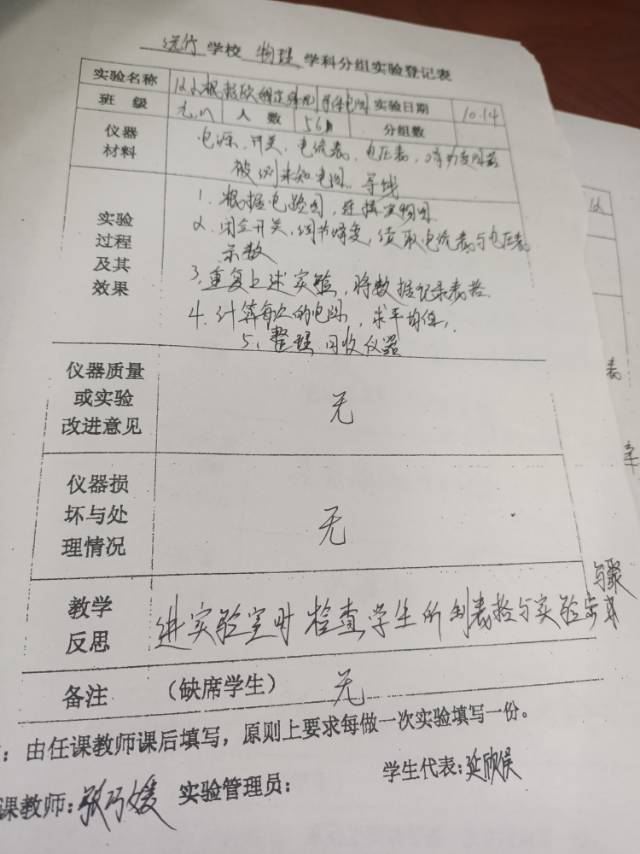 学校 物理 学科分组实验登记表
实验名称 实验日期 10.14
班级 人数 56人 分组数
仪器
材料
电源、开关、电流表、电压表、滑动变阻器
被测未知电阻、导线
实验
过程
及其
效果
1. 根据电路图,连接实物图
2. 闭合开关,调节滑变,读取电流表与电压表
示数
3. 重复上述实验,将数据记录表格.
4. 计算每次的电阻,求平均值.
5、整理回收仪器
仪器质量
或实验
改进意见
无
仪器损
坏与处
理情况
无
教学
反思
进实验室时检查学生所列表格与实验步骤
备注 (缺席学生) 无
:由任课教师课后填写,原则上要求每做一次实验填写一份。
课教师:张巧媛 实验管理员: 学生代表:延欣侯